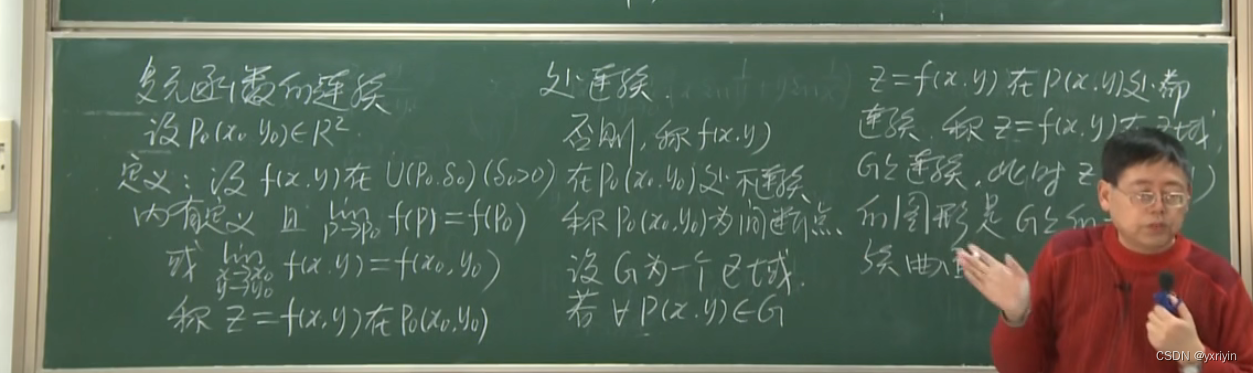 多元函数的连续
设P₀(x₀,y₀)∈R².
定义:设f(x.y)在U(P₀.δ₀)(δ₀>0)
内有定义 且 lim P→P₀ f(P)=f(P₀)
或 lim x→x₀ y→y₀ f(x.y)=f(x₀,y₀)
称 Z=f(x,y)在P₀(x₀,y₀)
处连续.
否则,称f(x.y)
在P₀(x₀,y₀)处不连续
称P₀(x₀,y₀)为间断点.
设G为一个区域.
若∀P(x.y)∈G
Z=f(x.y)在P(x.y)处都
连续.称Z=f(x.y)在区域
G上连续,此时Z
的图形是G上的
续曲
CSDN @yxriyin